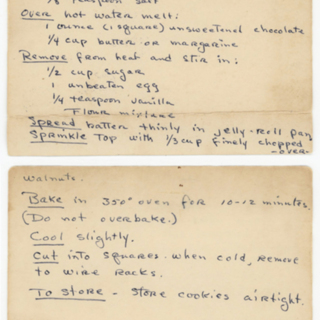 1/8 teaspoon salt
Over hot water melt:
1 ounce (1 square) unsweetened chocolate
1/4 cup butter or margarine
Remove from heat and stir in:
1/2 cup sugar
1 unbeaten egg
1/4 teaspoon vanilla
Flour mixture
Spread batter thinly in jelly-roll pan
Sprinkle top with 1/3 cup finely chopped
-over-
walnuts.
Bake in 350° oven for 10-12 minutes
(Do not overbake.)
Cool slightly.
Cut into squares. When cold, remove
to wire racks.
To Store - Store cookies airtight.